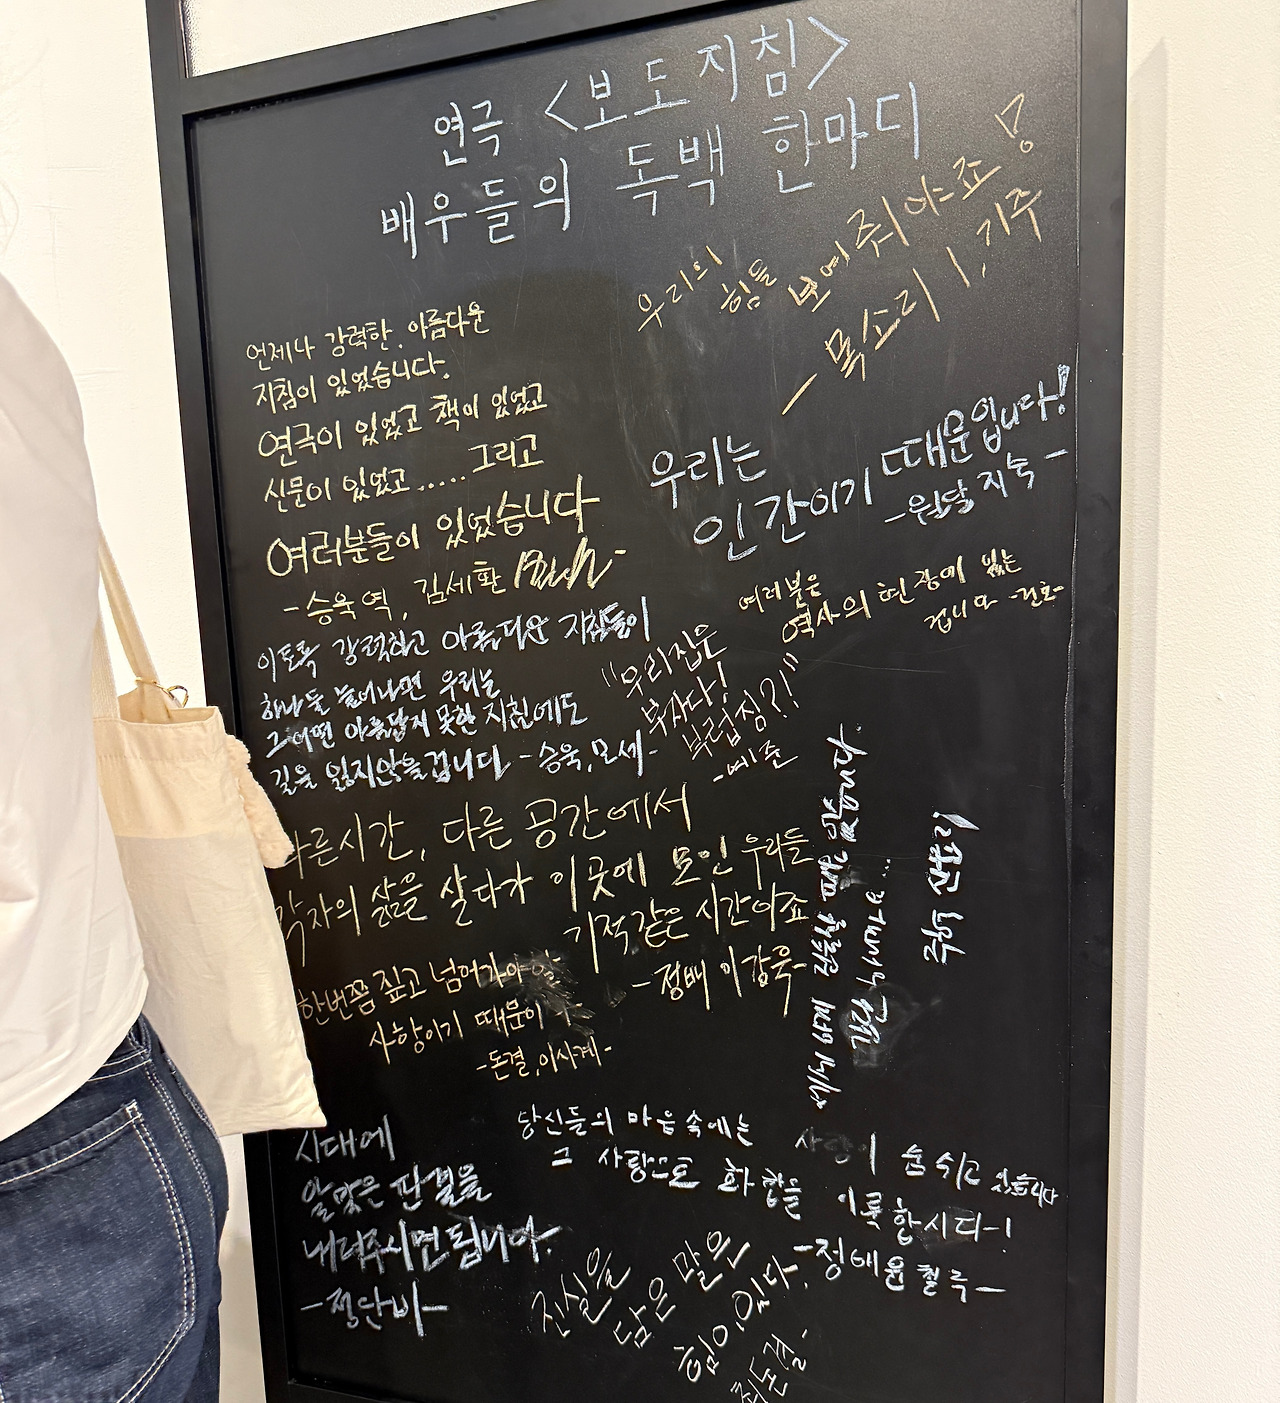 연극 <보도지침>
배우들의 독백 한마디
우리의
힘을 보여줘야죠!
- 목소리 1, 기주
언제나 강력한, 아름다운
지침이 있었습니다.
연극이 있었고 책이 있었고
신문이 있었고 ..... 그리고
여러분들이 있었습니다
- 승욱 역, 김세환
우리는
인간이기 때문입니다!
- 원달 지숙 -
여러분은
역사의 현장에 있는
겁니다 -건호-
이토록 강력하고 아름다운 지침들이
하나둘 늘어나면 우리는
그 어떤 아름답지 못한 지침에도
길을 잃지않을겁니다 - 승욱, 모세 -
"우리집은
부자다!
부럽징?!"
- 예준
다른시간, 다른 공간에서
각자의 삶을 살다가 이곳에 모인 우리들
기적같은 시간이죠
- 정배 이강욱 -
한번쯤 짚고 넘어가야 할
사항이기 때문이
- 돈결, 이사계 -
시대에
알맞은 판결을
내려주시면 됩니다.
- 정단비 -
당신들의 마음속에는 사랑이 숨쉬고 있습니다
그 사랑으로 화합을 이룩합시다-!
- 정배 윤철루 -
진실을
담은 말의
힘이, 있다.
최돈결 -